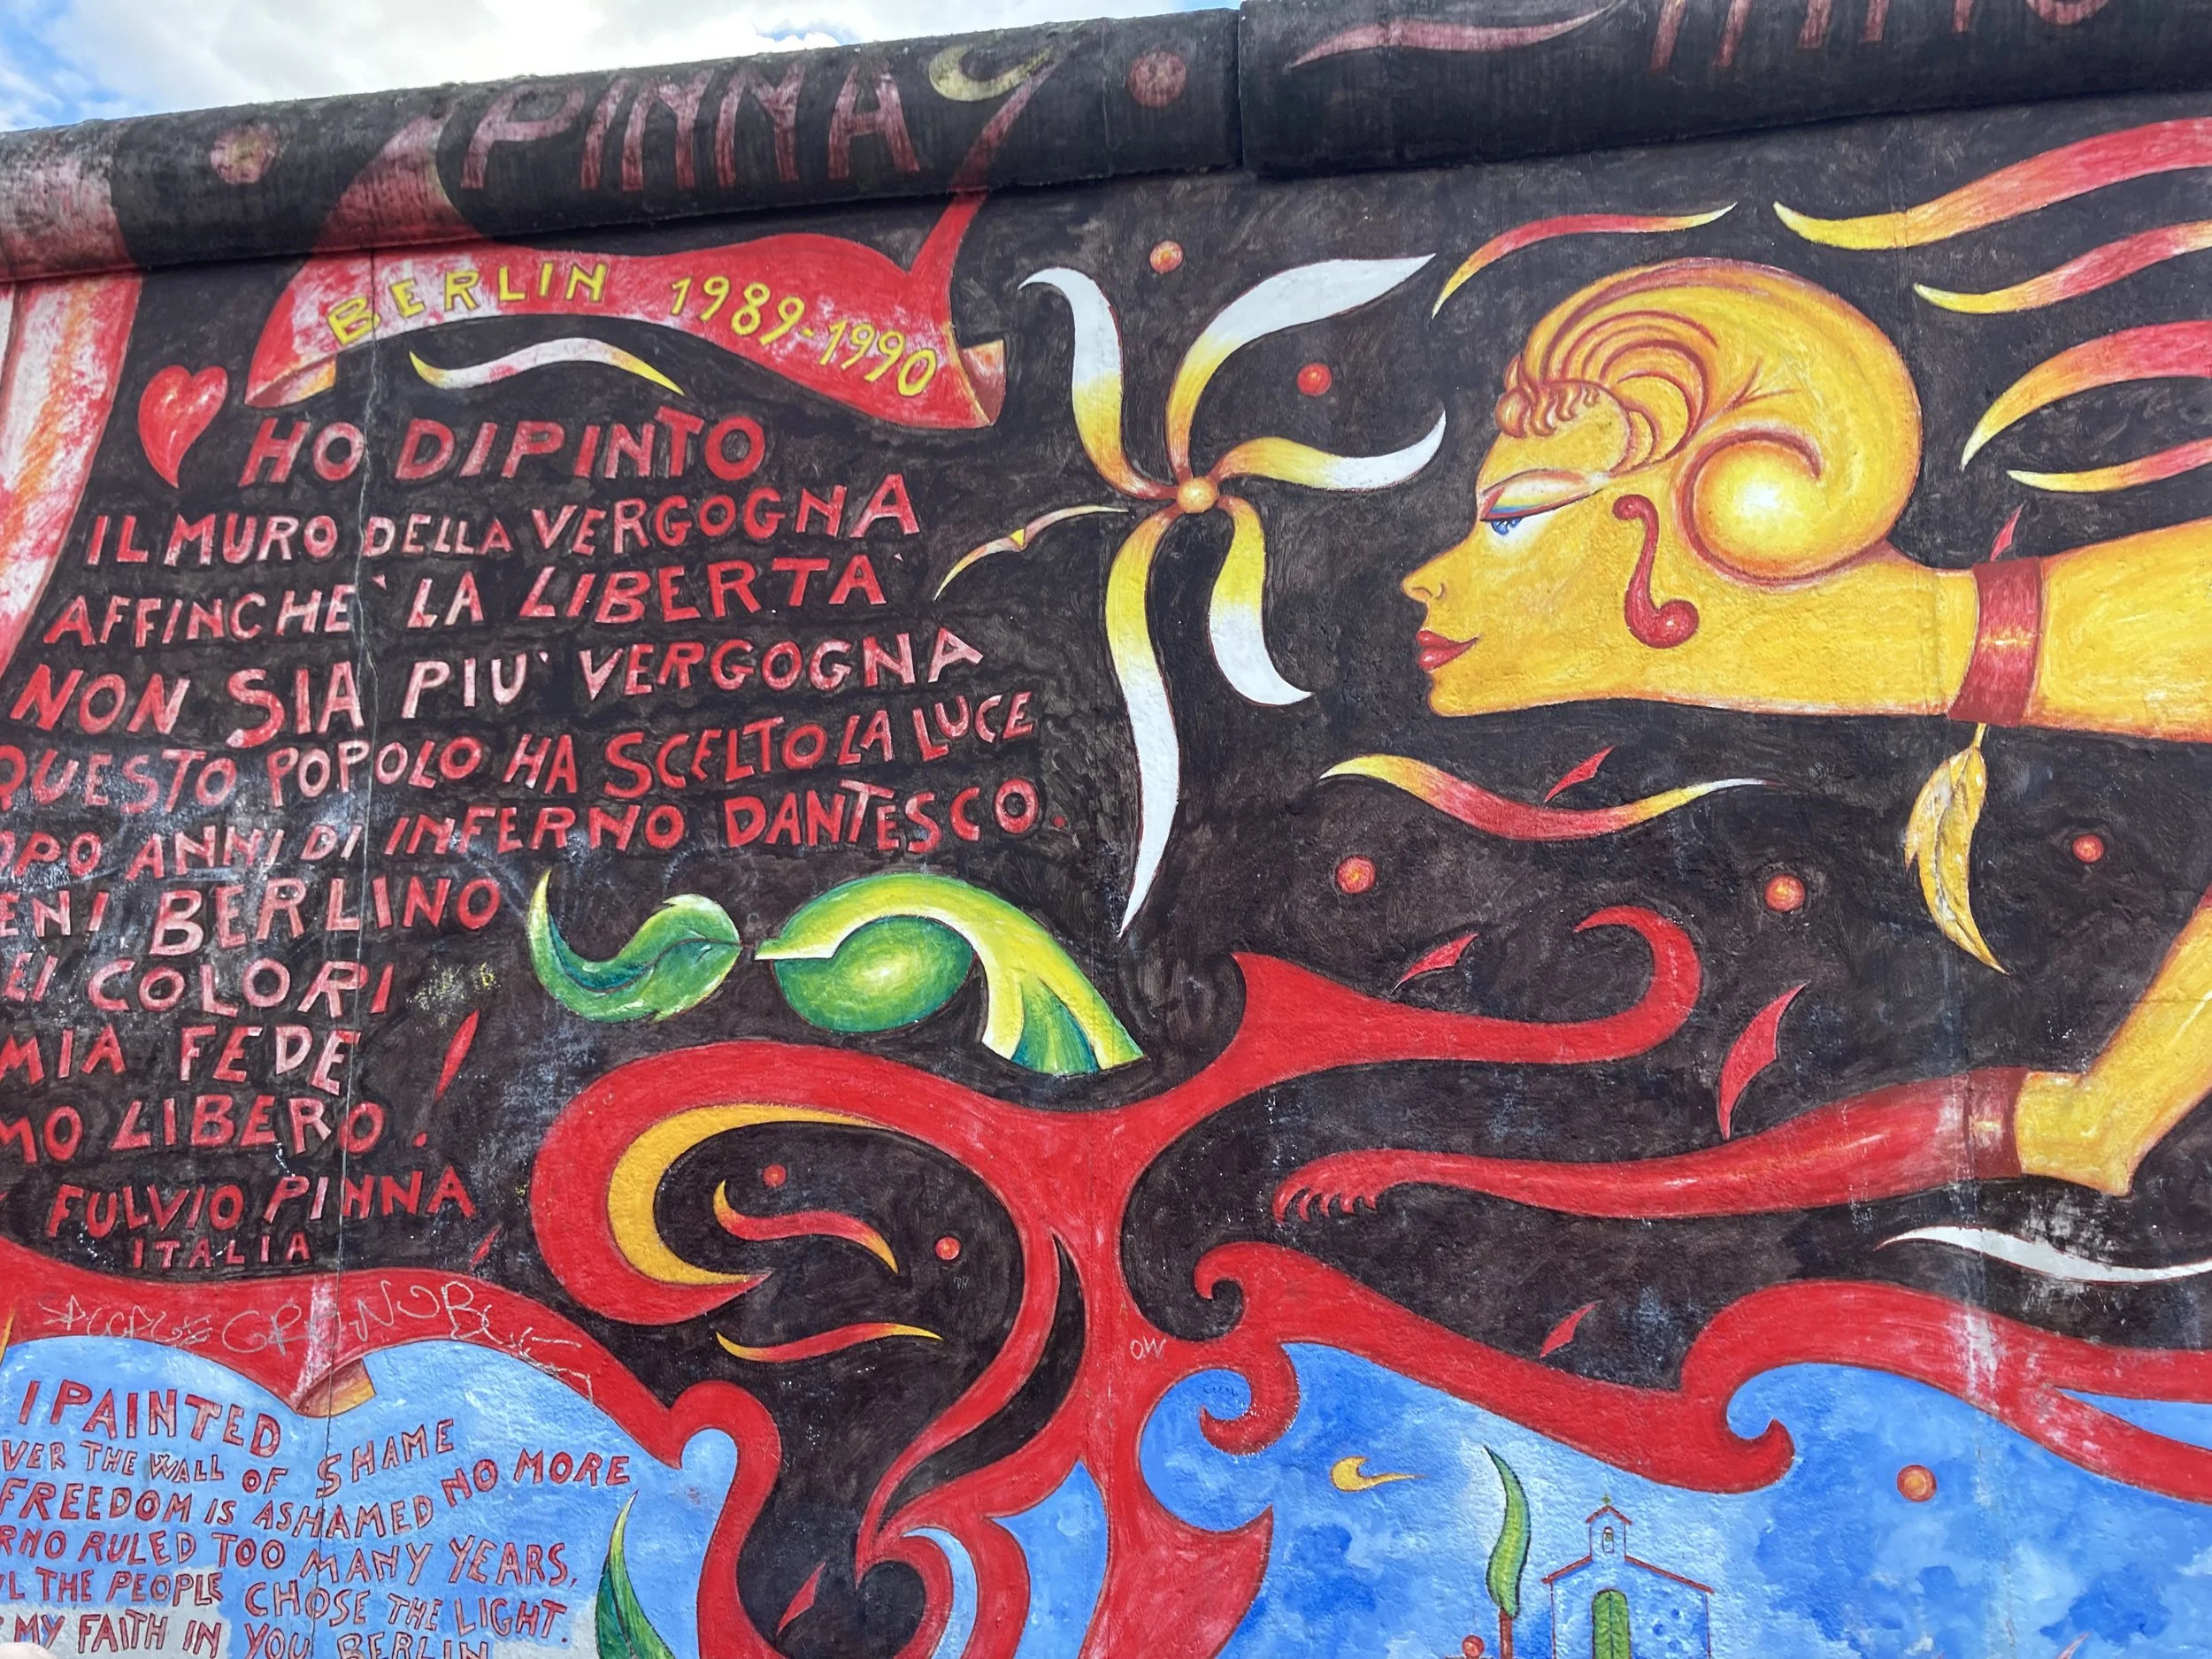 PINNA
BERLIN 1989-1990
HO DIPINTO
IL MURO DELLA VERGOGNA
AFFINCHE` LA LIBERTA`
NON SIA PIU` VERGOGNA
QUESTO POPOLO HA SCELTO LA LUCE
ANNI DI INFERNO DANTESCO.
BERLINO
EI COLORI
MIA FEDE
MO LIBERO !
FULVIO PINNA
ITALIA
O.W
I PAINTED
VER THE WALL OF SHAME
FREEDOM IS ASHAMED NO MORE
RNO RULED TOO MANY YEARS,
IL THE PEOPLE CHOSE THE LIGHT.
MY FAITH IN YOU BERLIN